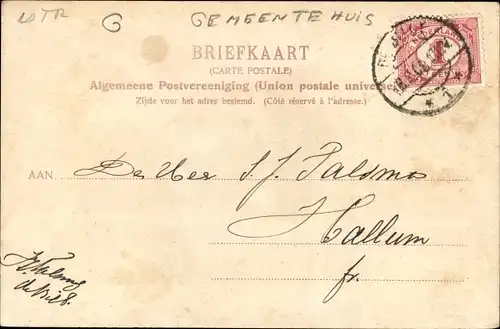 10TR G GEMEENTEHUIS
BRIEFKAART
(CARTE POSTALE)
Algemeene Postvereeniging (Union postale universe
Zijde voor het adres bestemd. (Côté réservé à l'adresse.)
NEDERLAND
1
AAN De Heer S. J. Palsma
Hallum
fr.